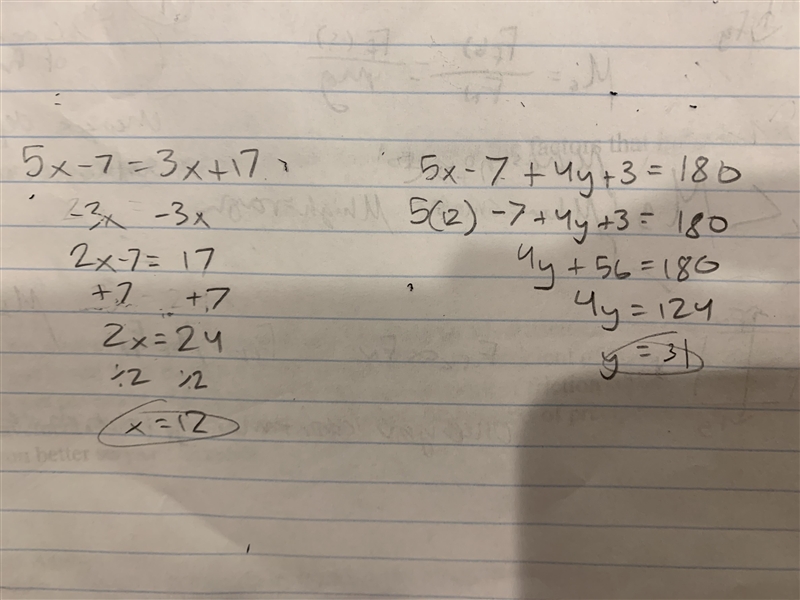 5x-7=3x+17
-3x -3x
2x-7=17
+7 +7
2x=24
÷2 ÷2
x=12
5x-7+4y+3=180
5(12)-7+4y+3=180
4y+56=180
4y=124
y=31
factors that
on better